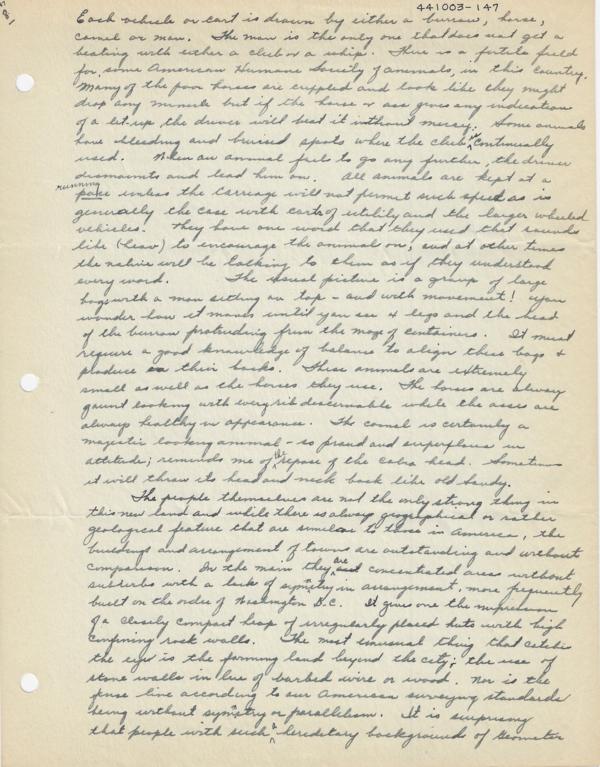 441003-147
Each vehicle or cart is drawn by either a burrow, horse,
camel or man. The man is the only one that does not get a
beating with either a club or a whip. There is a fertile field
for some American Humane Society of animals, in this country.
Many of the poor horses are crippled and look like they might
drop any minute but if the horse or ass gives any indication
of a let-up the driver will beat it without mercy. Some animals
have bleeding and bruised spots where the club is continually
used. When an animal fails to go any further, the driver
dismounts and lead him on. All animals are kept at a
running
pace unless the carriage will not permit such speed as is
generally the case with carts of utility and the larger wheeled
vehicles. They have one word that they used that sounds
like (haw) to encourage the animal on, and at other times
the native will be talking to them as if they understood
every word. The usual picture is a group of large
bags with a man sitting on top - and with movement! You
wonder how it moves until you see 4 legs and the head
of the burrow protruding from the maze of containers. It must
require a good knowledge of balance to align these bags &
produce on their backs. These animals are extremely
small as well as the horses they use. The horses are always
gaunt looking with every rib discernable while the asses are
always healthy in appearance. The camel is certainly a
majestic looking animal - so proud and superfluous in
attitude; reminds me of the repose of the cobra head. Sometimes
it will throw its head and neck back like old Sandy.
The people themselves are not the only strong thing in
this new land and while there is always geographical or rather
geological feature that are similar to those in America, the
buildings and arrangement of towns are outstanding and without
comparison. In the main they are concentrated areas without
suburbs with a lack of symmetry in arrangement, more frequently
built on the order of Washington D.C. It gives one the impression
of a closely compact heap of irregularly placed huts with high
confining rock walls. The most unusual thing that catches
the eye is the farming land beyond the city; the use of
stone walls in lieu of barbed wire or wood. Nor is the
fence line according to our American surveying standards
being without symmetry or parallelism. It is surprising
that people with such a hereditary backgrounds of Geometer